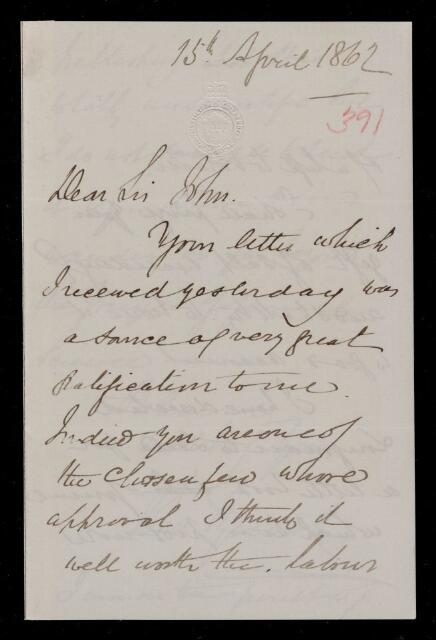 15th April 1862
391
Dear Sir John.
Your letter which
I received yesterday was
a source of very great
gratification to me.
Indeed you are one of
the chosen few whose
approval I think it
well worth the labour